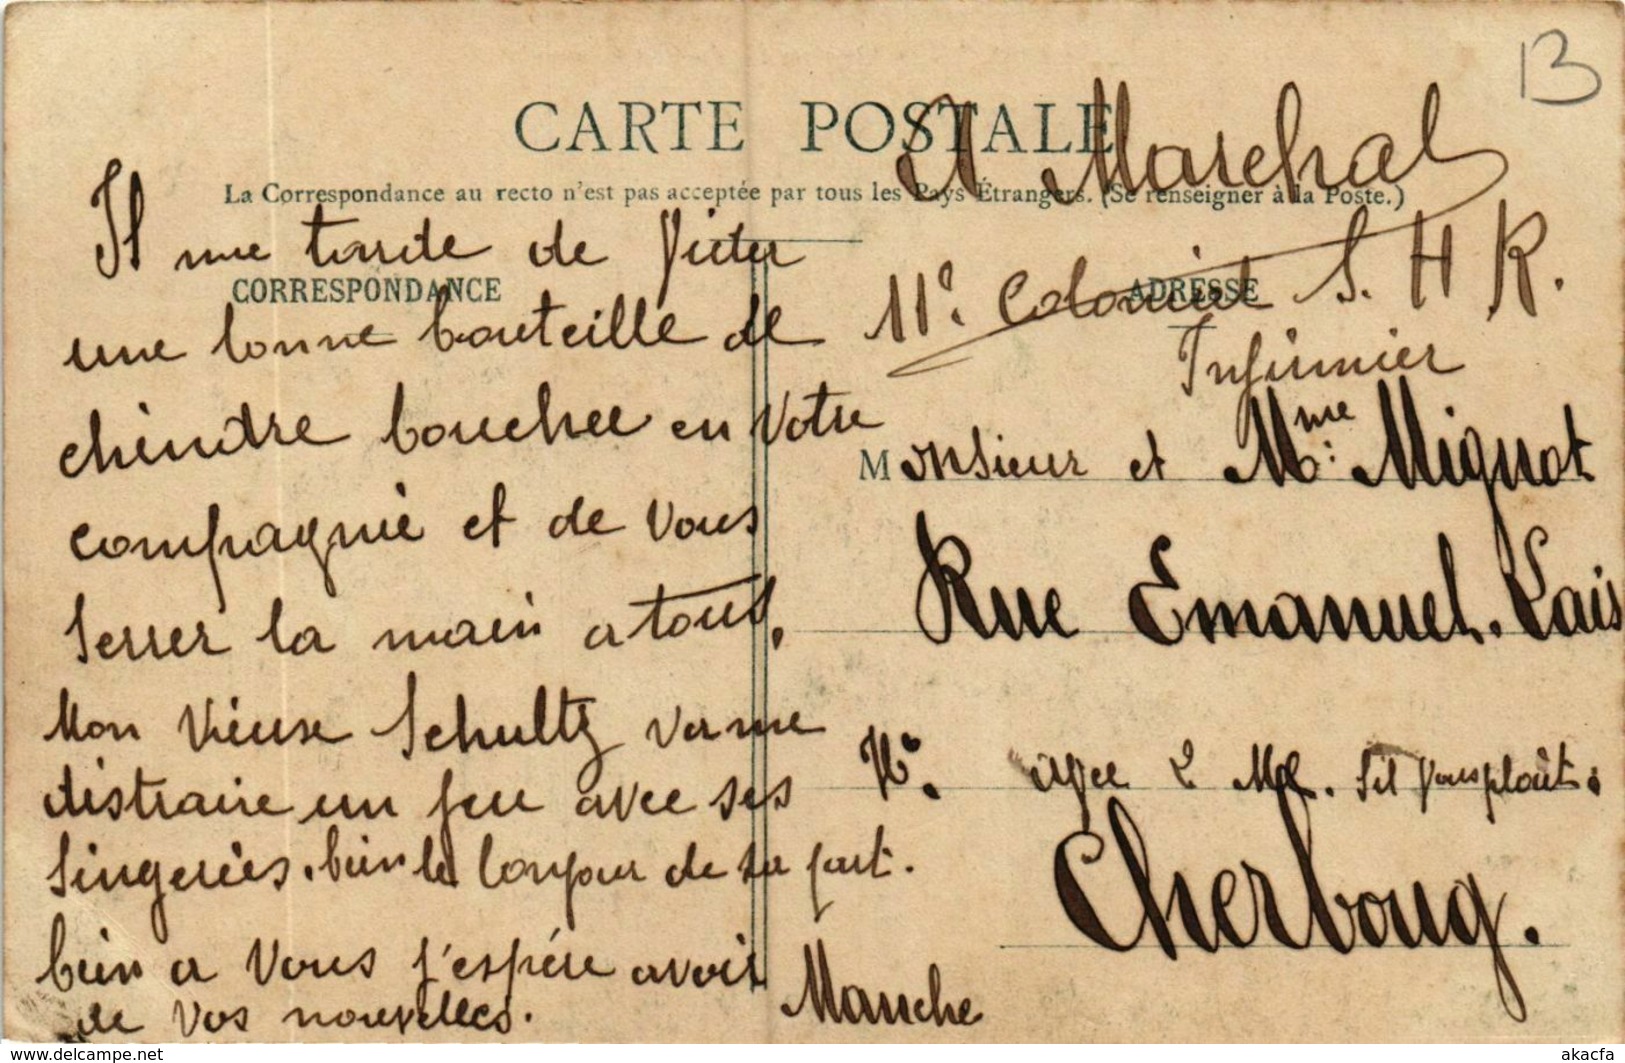 13
CARTE POSTALE
La Correspondance au recto n'est pas acceptée par tous les Pays Étrangers. (Se renseigner à la Poste.)
CORRESPONDANCE
ADRESSE
Il me tarde de
une bonne bouteille de
bouchee en votre
compagnie et de vous
serrer la main a tous.
Mon vieuse Schultz
distraire un peu avec ses
singeries. bien le bonjour de sa part.
bien a vous j'espére avoir
de vos nouvelles.
Marechal
11e Colonial S. H. R.
Infirmier
Monsieur et Mme: Mignot
Rue Emanuel. Lais
No. avec 2 Sil vous plait.
Cherboug.
Manche
akpool.com
akacfa